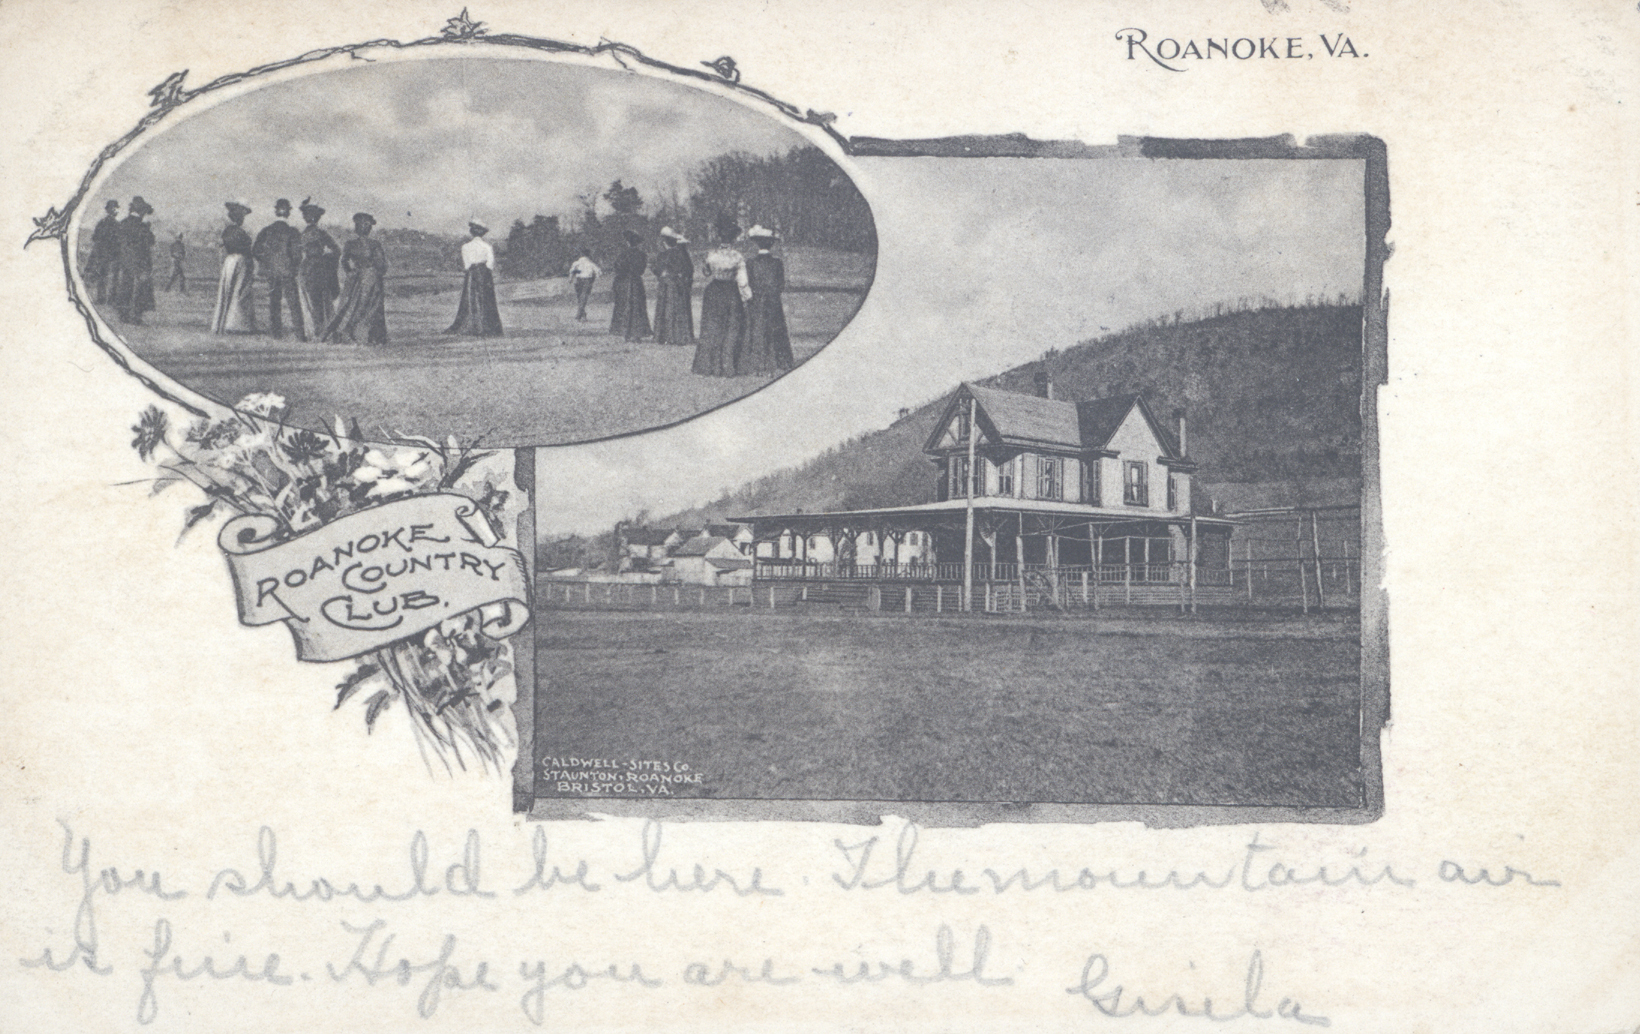 ROANOKE, VA.
ROANOKE
COUNTRY
CLUB.
CALDWELL-SITES CO.
STAUNTON-ROANOKE
BRISTOL, VA.
You should be here. The mountain air
is fine. Hope you are well
Gisela